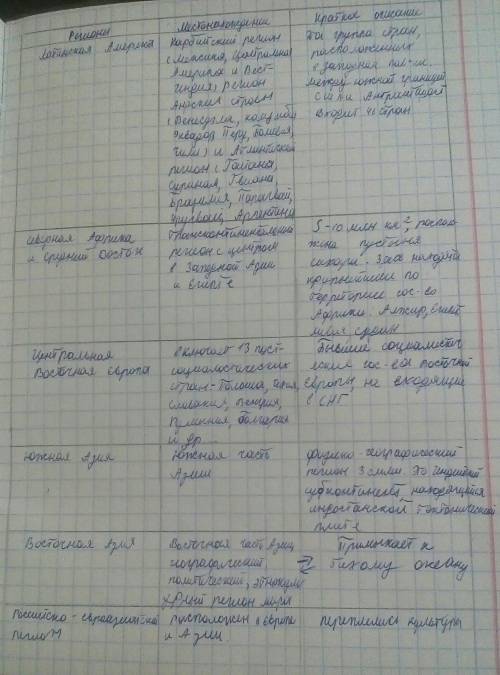 Регионы
Местонахождение
Краткое описание
Латинская Америка
Карибский регион
(Мексика, Центральная
Америка и Вест-
Индия) Регион
Андских стран
(Венесуэла,
Эквадор Перу, Боливия,
Чили) и Атлантический
регион (
Гвиана,
Бразилия, Парагвай,
Уругвай, Аргентина
Это группа стран,
расположенных
в западном
между южной границей
США и Антарктидой
входит 46 стран
Северная Африка
и Средний Восток
Трансконтинентальный
регион с центром
в Западной Азии
и Египте
5-10 млн км², располо-
жена пустыня
сахара. Здесь находятся
крупнейшие по
территории гос-ва
Африки. Алжир, Египет
Ливия, Судан
Центральная
Восточная Европа
включает 13 пост-
социалистических
стран - Польша,
Словакия, Венгрия,
Румыния, Болгария
и др.
Бывшие социалистич
еские гос-ва восточной
Европы, не входящие
в СНГ
Южная Азия
Южная часть
Азии
физико-географический
регион Земли. Это индийский
субконтинент, находящийся
индостанской тектонической
плите
Восточная Азия
Восточная часть Азии,
географический,
политический,
регион мира
Примыкает к
Тихому океану
Российско-евроазиатский
регион
расположен в Европе
и Азии
переплелись культуры